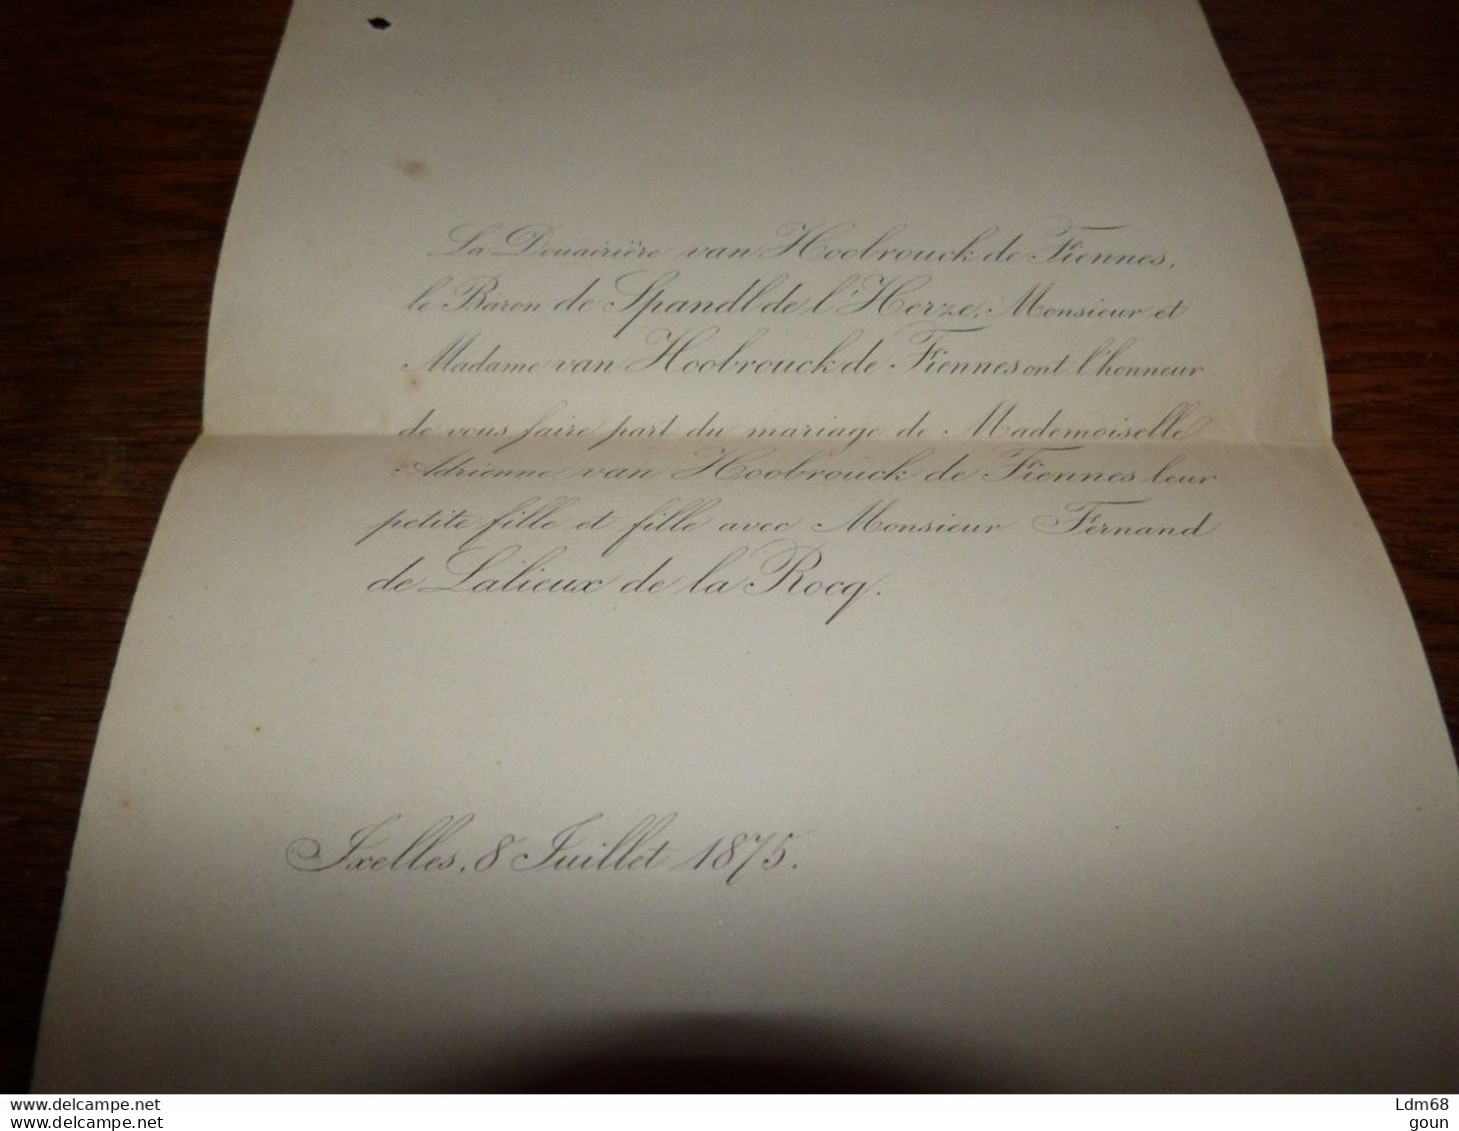 La Douairière van Hoobrouck de Fiennes,
le Baron de Spandl de l'Herze, Monsieur et
Madame van Hoobrouck de Fiennes ont l'honneur
de vous faire part du mariage de Mademoiselle
Adrienne van Hoobrouck de Fiennes leur
petite fille et fille avec Monsieur Fernand
de Lalieux de la Rocq.
Ixelles, 8 Juillet 1875.
www.delcampe.net Ldm68
www.delcampe.net goun